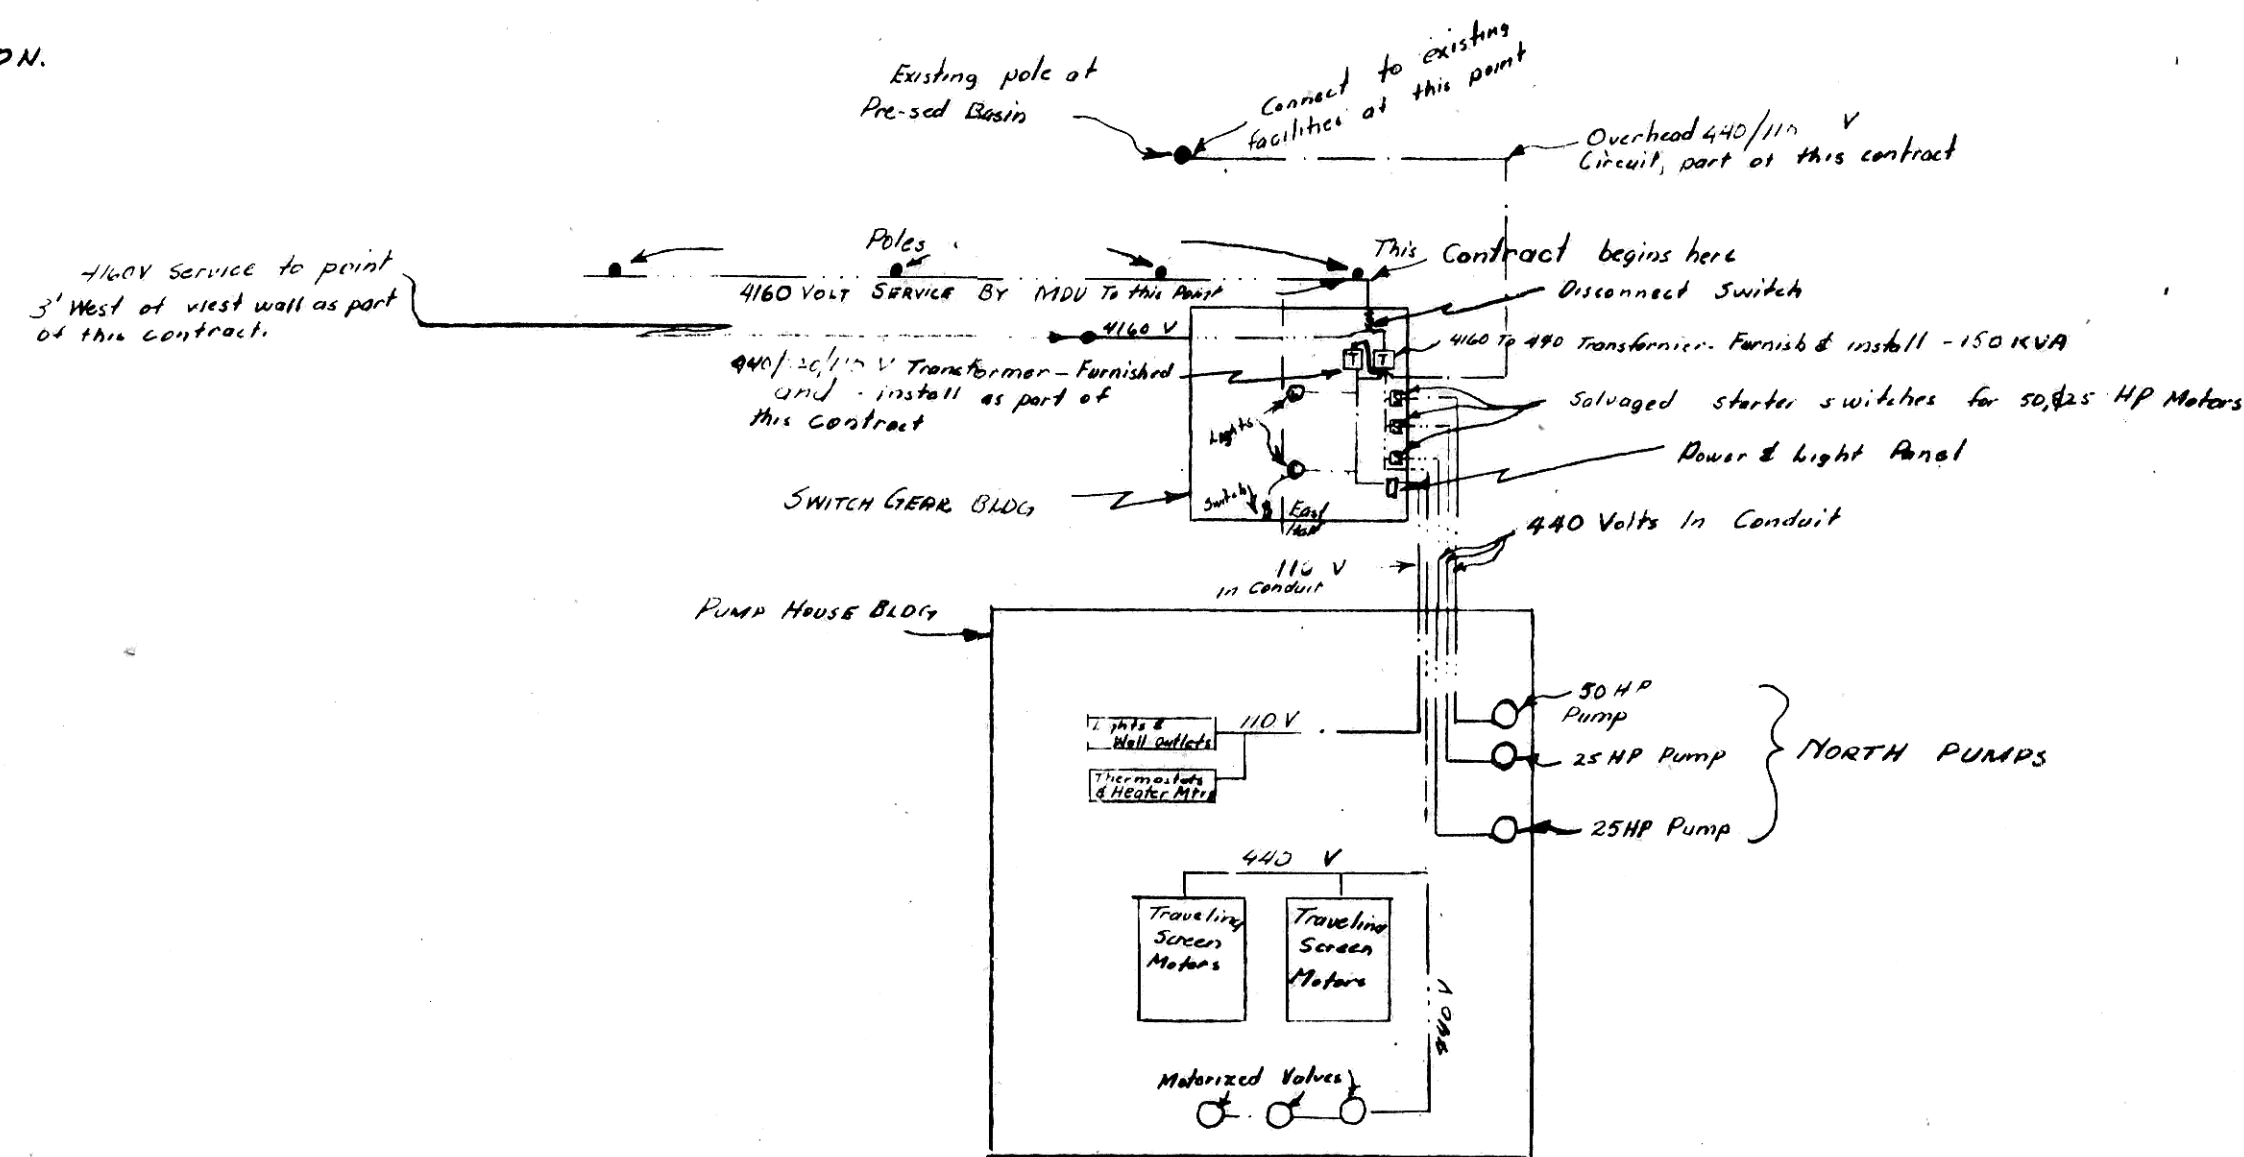 ON.
Existing pole at
Pre-sed Basin
Connect to existing
facilities at this point
Overhead 440/110 V
Circuit, part of this contract
Poles
This Contract begins here
4160V Service to point
3' West of west wall as part
of this contract.
4160 VOLT SERVICE BY MDU To this Point
Disconnect Switch
4160 V
4160 To 440 Transformer - Furnish & install - 150 KVA
T
T
V Transformer - Furnished
and install as part of
this contract
Salvaged starter switches for 50, & 25 HP Motors
Lights
Power & Light Panel
SWITCH GEAR BLDG
Switch
East
Half
440 Volts In Conduit
110 V
in Conduit
PUMP HOUSE BLDG
50 HP
Pump
Lights &
Wall Outlets
110 V
25 HP Pump
NORTH PUMPS
Thermostats
& Heater Mtrs
25 HP Pump
440 V
Traveling
Screen
Motors
Traveling
Screen
Motors
440 V
Motorized Valves